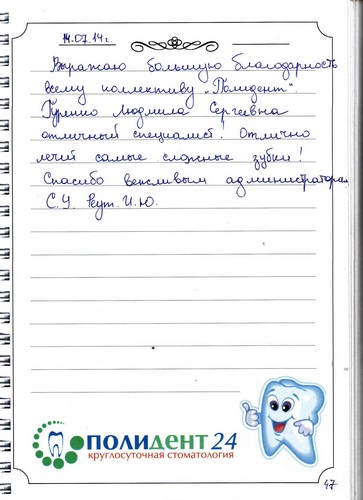 14.07.14г.
Выражаю большую благодарность
всему коллективу „Полидент".
Гуренко Людмила Сергеевна
отличный специалист! Отлично
лечит самые сложные зубки!
Спасибо вежливым администраторам
С.У. Реут. И.Ю.
ПОЛИДЕНТ 24
круглосуточная стоматология
47